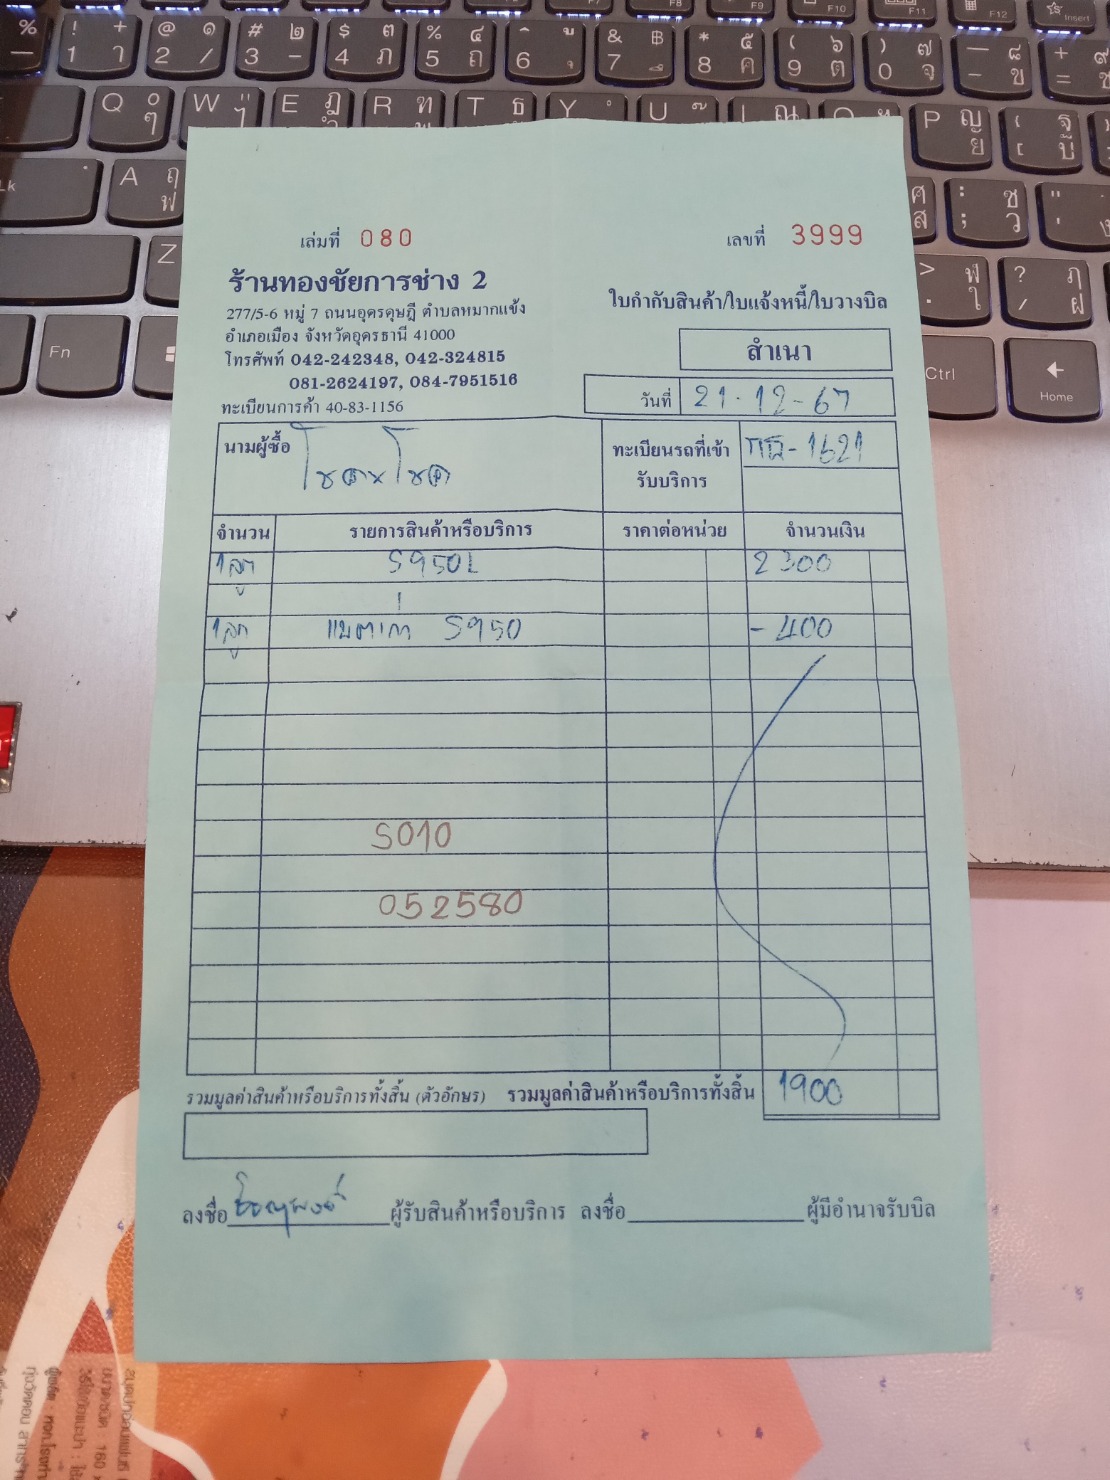 เล่มที่ 080
เลขที่ 3999
ร้านทองชัยการช่าง 2
277/5-6 หมู่ 7 ถนนอุดรดุษฎี ตำบลหมากแข้ง
อำเภอเมือง จังหวัดอุดรธานี 41000
โทรศัพท์ 042-242348, 042-324815
081-2624197, 084-7951516
ทะเบียนการค้า 40-83-1156
ใบกำกับสินค้า/ใบแจ้งหนี้/ใบวางบิล
สำเนา
วันที่ 21-12-67
นามผู้ซื้อ
ทะเบียนรถที่เข้า
รับบริการ
-1621
จำนวน รายการสินค้าหรือบริการ ราคาต่อหน่วย จำนวนเงิน
1ลูก S950L 2300
1ลูก แบตเก่า S950 -400
S010
052580
รวมมูลค่าสินค้าหรือบริการทั้งสิ้น (ตัวอักษร) รวมมูลค่าสินค้าหรือบริการทั้งสิ้น 1900
ลงชื่อ ผู้รับสินค้าหรือบริการ ลงชื่อ ผู้มีอำนาจรับบิล